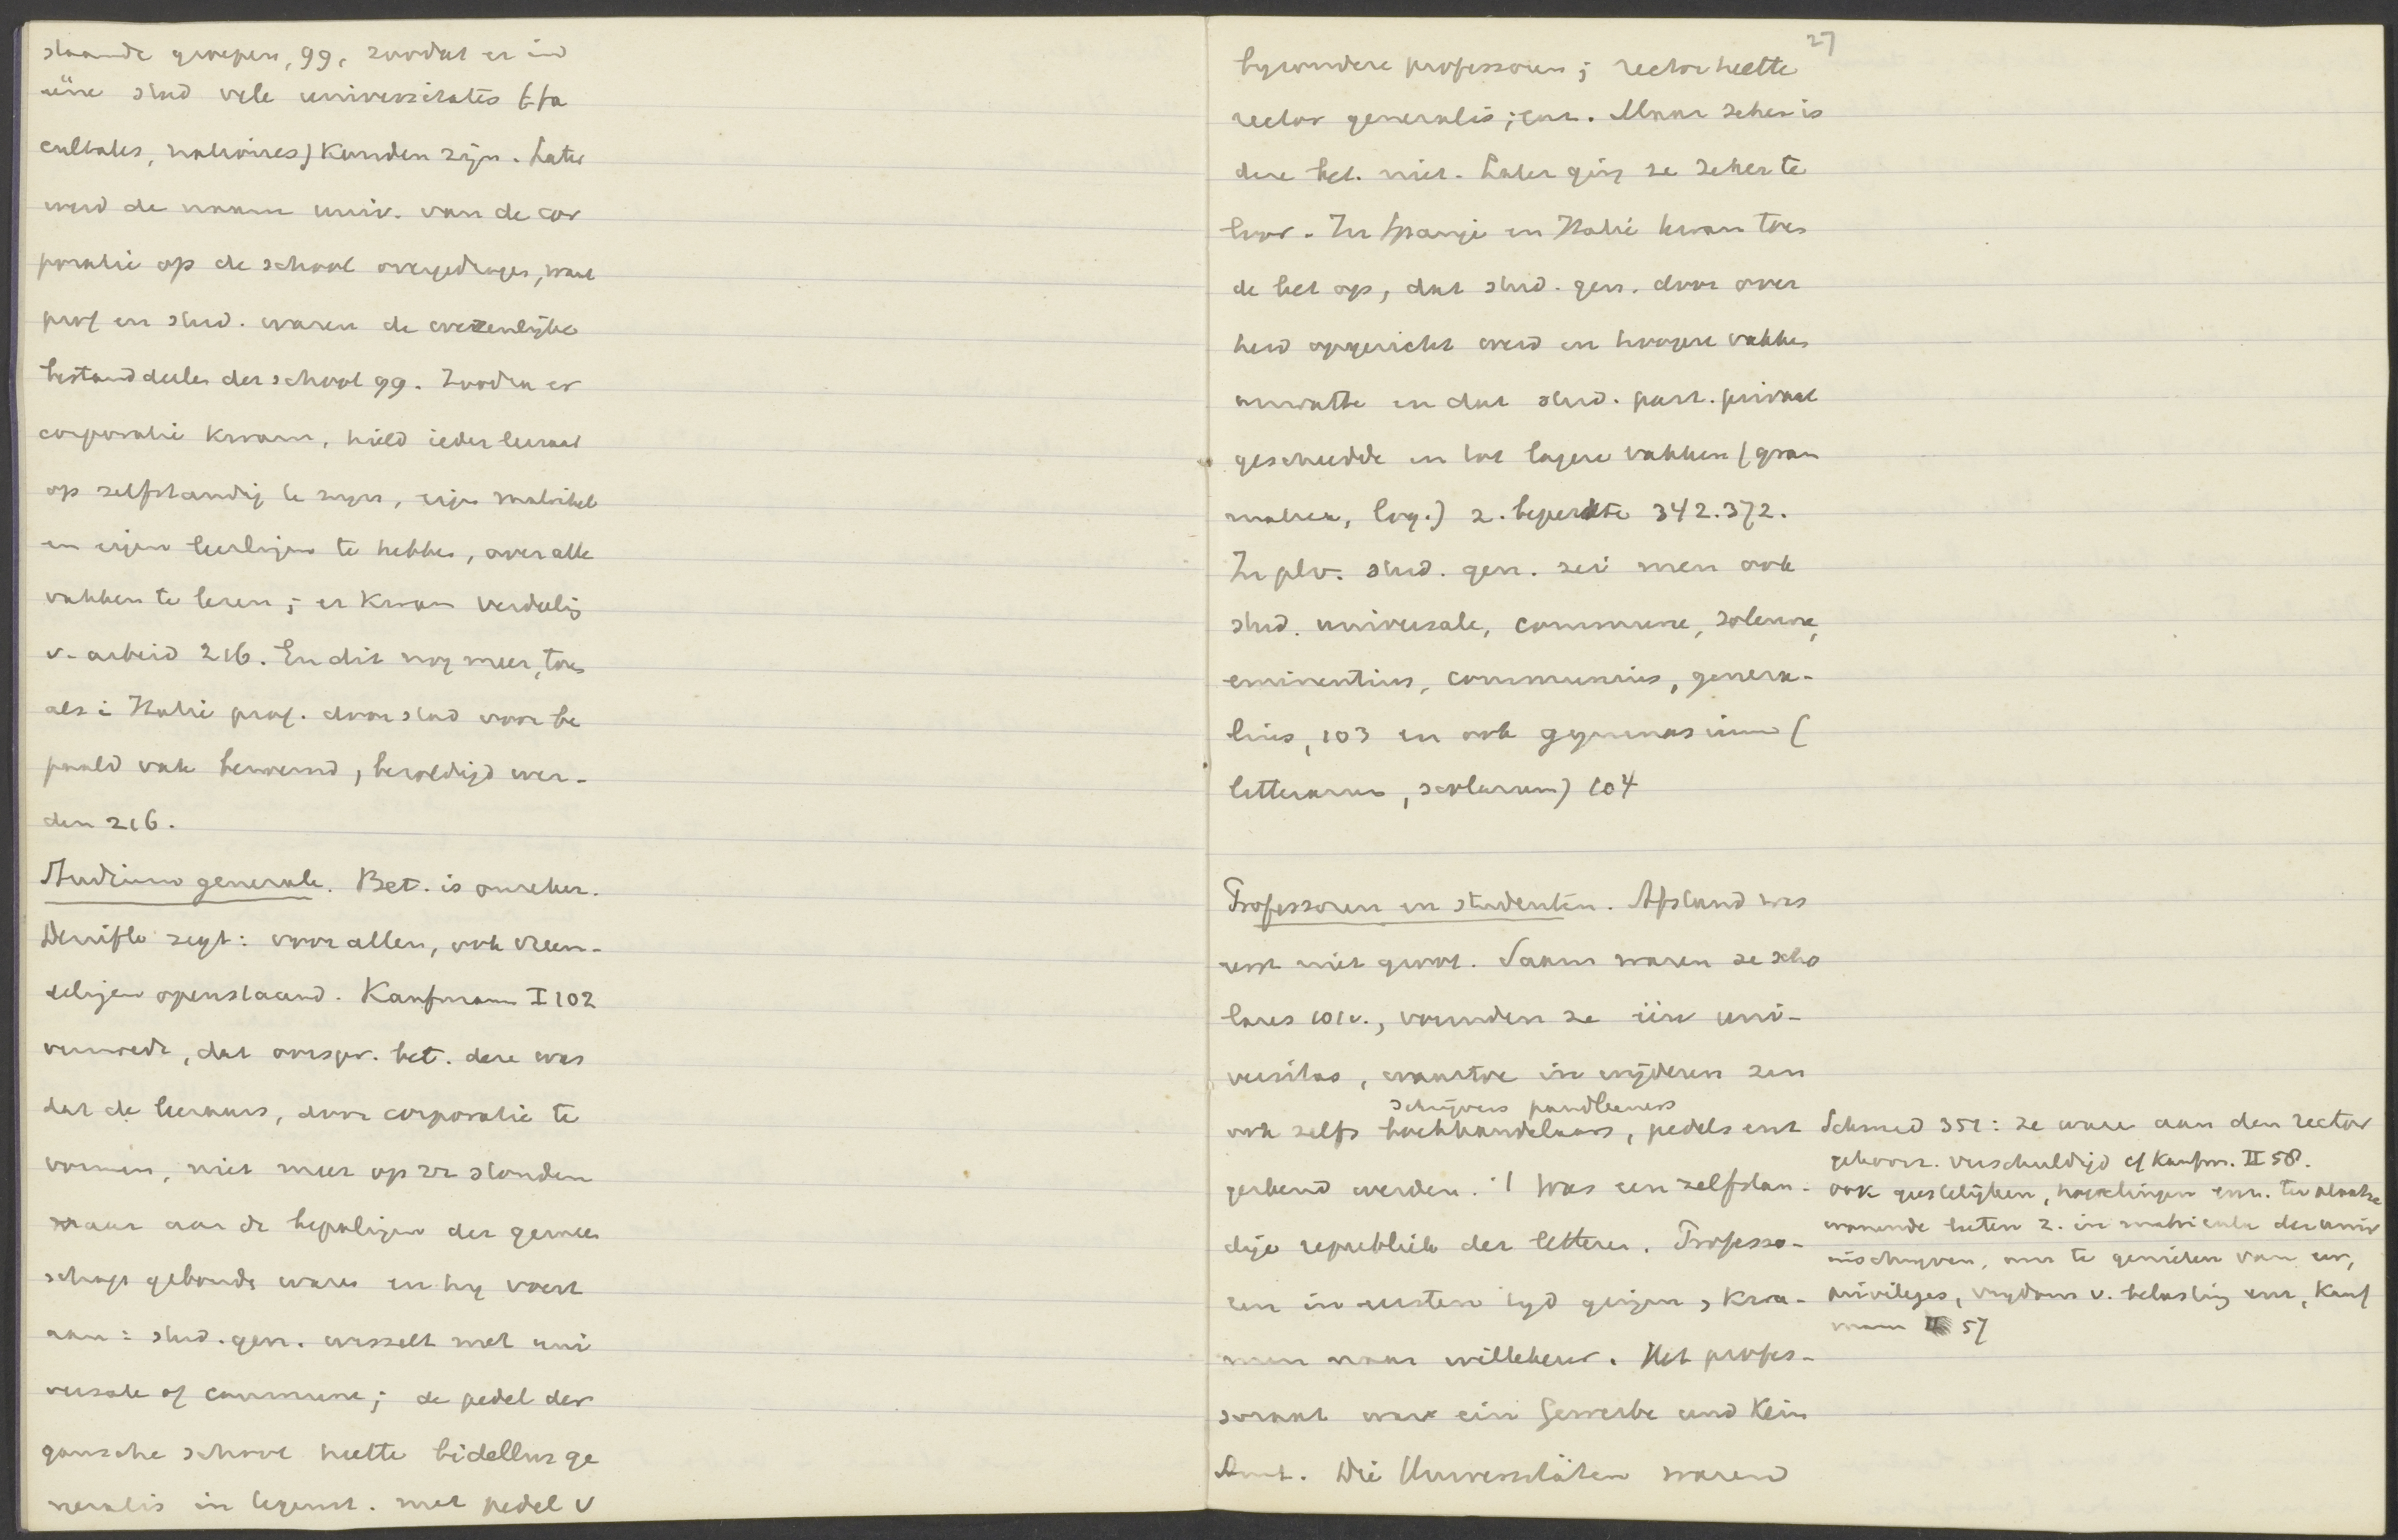 staande groepen, 99, zoodat er in
eene stad vele universitates (fa
cultates, nationes) konden zijn. Later
werd de naam univ. van de cor
poratie op de school overgedragen, want
prof en stud. waren de wezenlijke
bestanddeelen der school 99. Zoodra er
corporatie kwam, hield ieder leeraar
op zelfstandig te zijn, eigen matrikel
en eigen leerlingen te hebben, over alle
vakken te leeren; er kwam verdeeling
v. arbeid 216. En dit nog meer, toen
als i Italië prof. door stad voor be
paald vak benoemd, bezoldigd wer-
den 216.
Studium generale. Bet. is onzeker.
Denifle zegt: voor allen, ook vreem-
delingen openstaand. Kaufmann I 102
vermoedt, dat oorspr. bet. deze was
dat de leeraars, door corporatie te
vormen, niet meer op zz stonden
maar aan de bepalingen der gemeen
schap gebonden waren en hij voert
aan: stud. gen. wisselt met uni
versale of commune; de pedel der
gansche school heette bidellus ge
neralis in tegenst. met pedel v
27
byzondere professoren; rector heette
rector generalis; enz. Maar zeker is
deze bet. niet. Later ging ze zeker te
loor. In Spanje en Italië kwam toen
de bet op, dat stud. gen. door over
heid opgericht werd en hoogere vakken
omvatte en dat stud. part. privaat
geschiedde en tot lagere vakken (gram
matica, log.) z. beperkte 342. 372.
In plv. stud. gen. zei men ook
stud. universale, commune, solenne,
eminentius, communius, genera-
lius, 103 en ook gymnasium (
litterarum, scolarum) 104
Professoren en studenten. Afstand was
eerst niet groot. Saam waren ze scho
lares 101v., vormden ze één uni-
versitas, waartoe in wijderen zin
schrijvers pandleeners
ook zelfs boekhandelaars, pedels enz
gerekend werden. 't Was een zelfstan-
dige republiek der letteren. Professo-
ren in eersten tyd gingen, kwa-
men naar willekeur. Het profes-
soraat war ein Gewerbe und kein
Amt. Die Universitäten waren
Schmid 351: ze waren aan den rector
gehoorz. verschuldigd cf Kaufm. II 58.
ook geestelijken, enz. ter plaatse
wonende lieten z. in matricula der univ
inschryven, om te genieten van eer,
privileges, vrydom v. belasting enz, Kauf
mann II 57